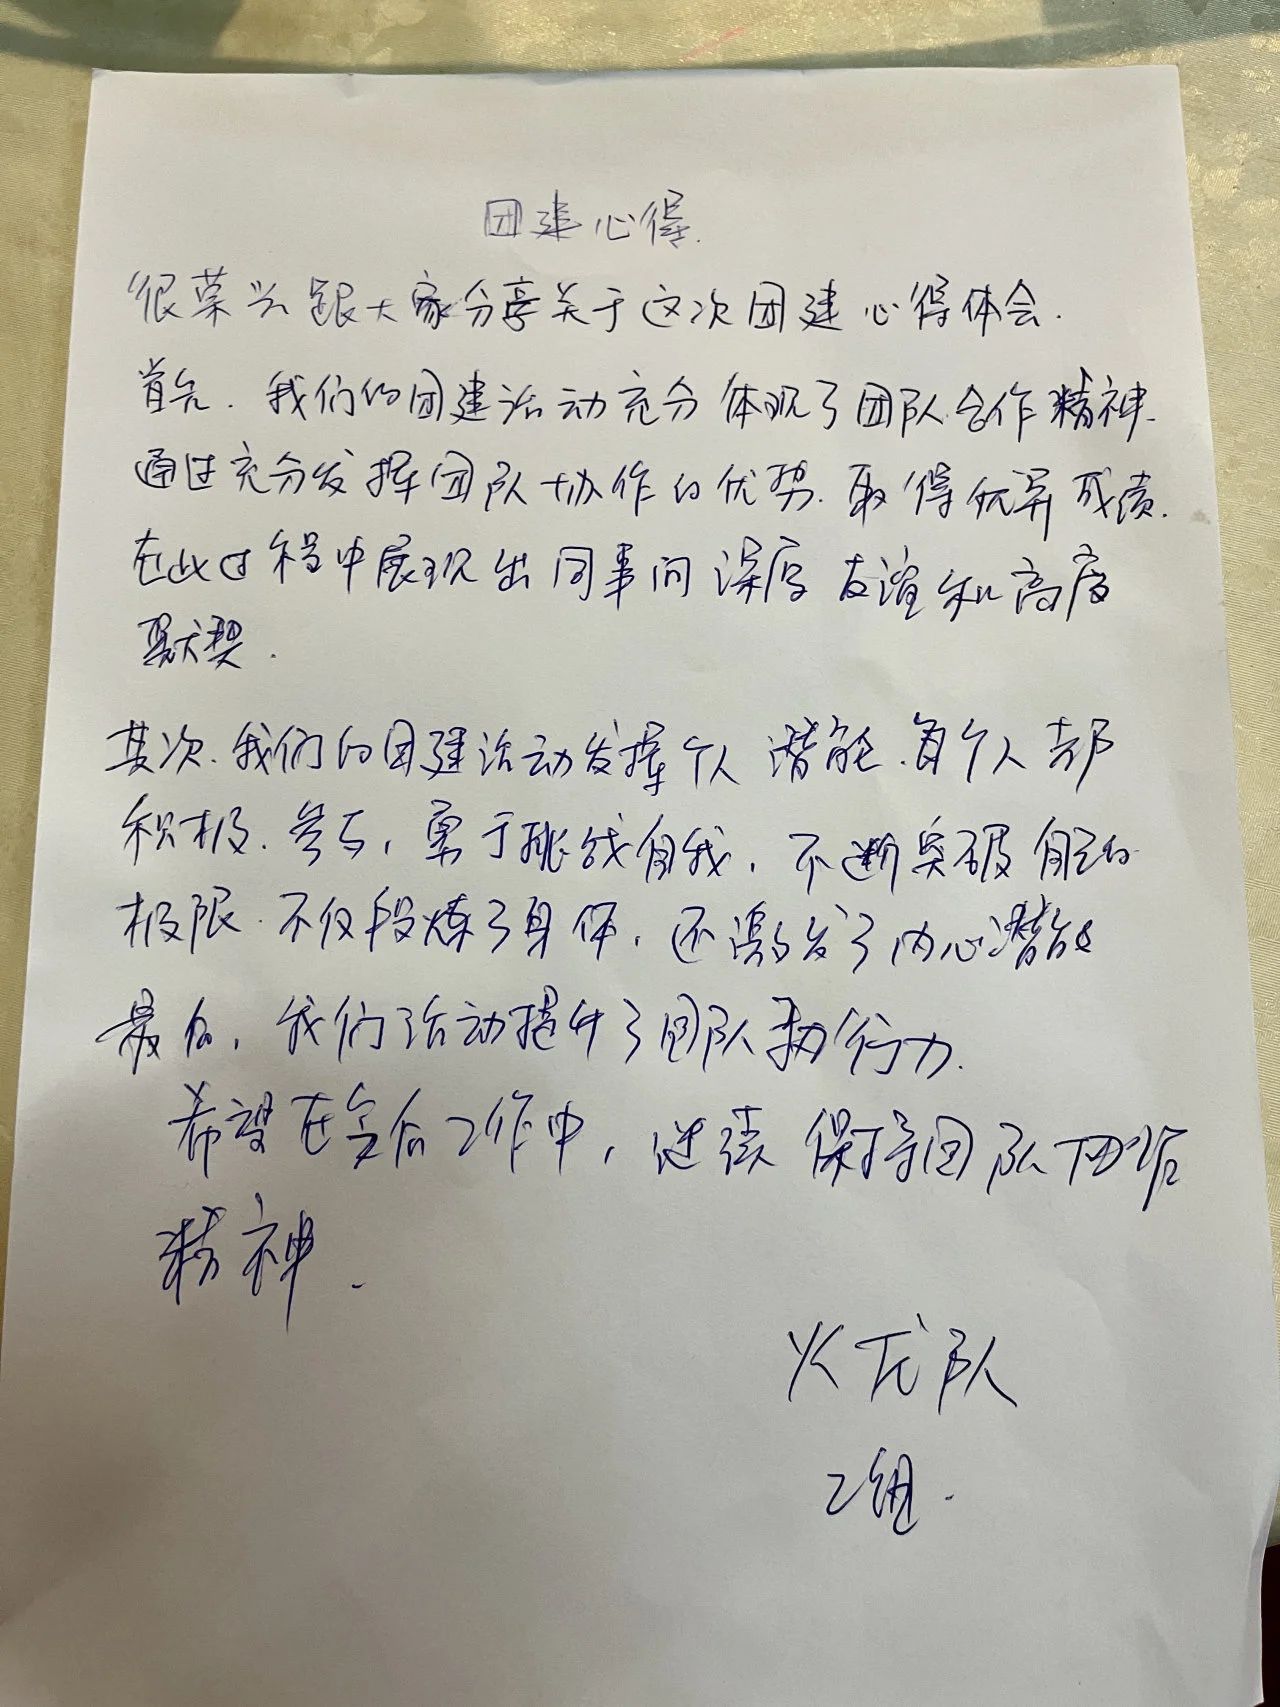 团建心得.
很荣兴跟大家分享关于这次团建心得体会.
首先.我们的团建活动充分体现了团队合作精神.
通过充分发挥团队协作的优势.取得优异成绩.
在此过程中展现出同事间深厚友谊和高度
默契.
其次.我们的团建活动发挥个人潜能.每个人都
积极.参与,勇于挑战自我,不断突破自己的
极限.不仅段炼了身体,还激发了内心潜能
最后,我们活动提升了团队执行力.
希望在今后工作中,继续保持团队
精神.
火龙队
2组.